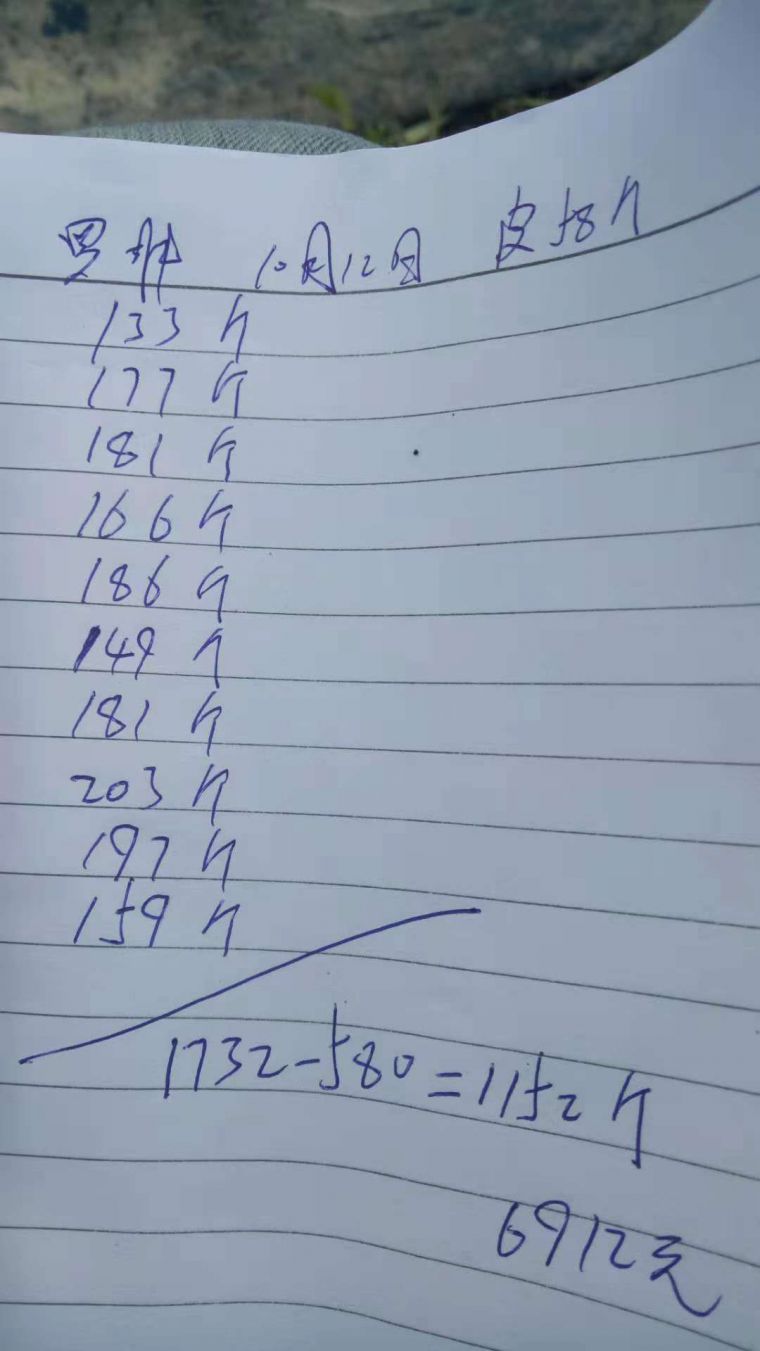 10月12日 皮58斤
133斤
177斤
181斤
166斤
186斤
149斤
181斤
203斤
197斤
159斤
1732-580=1152斤
6912元